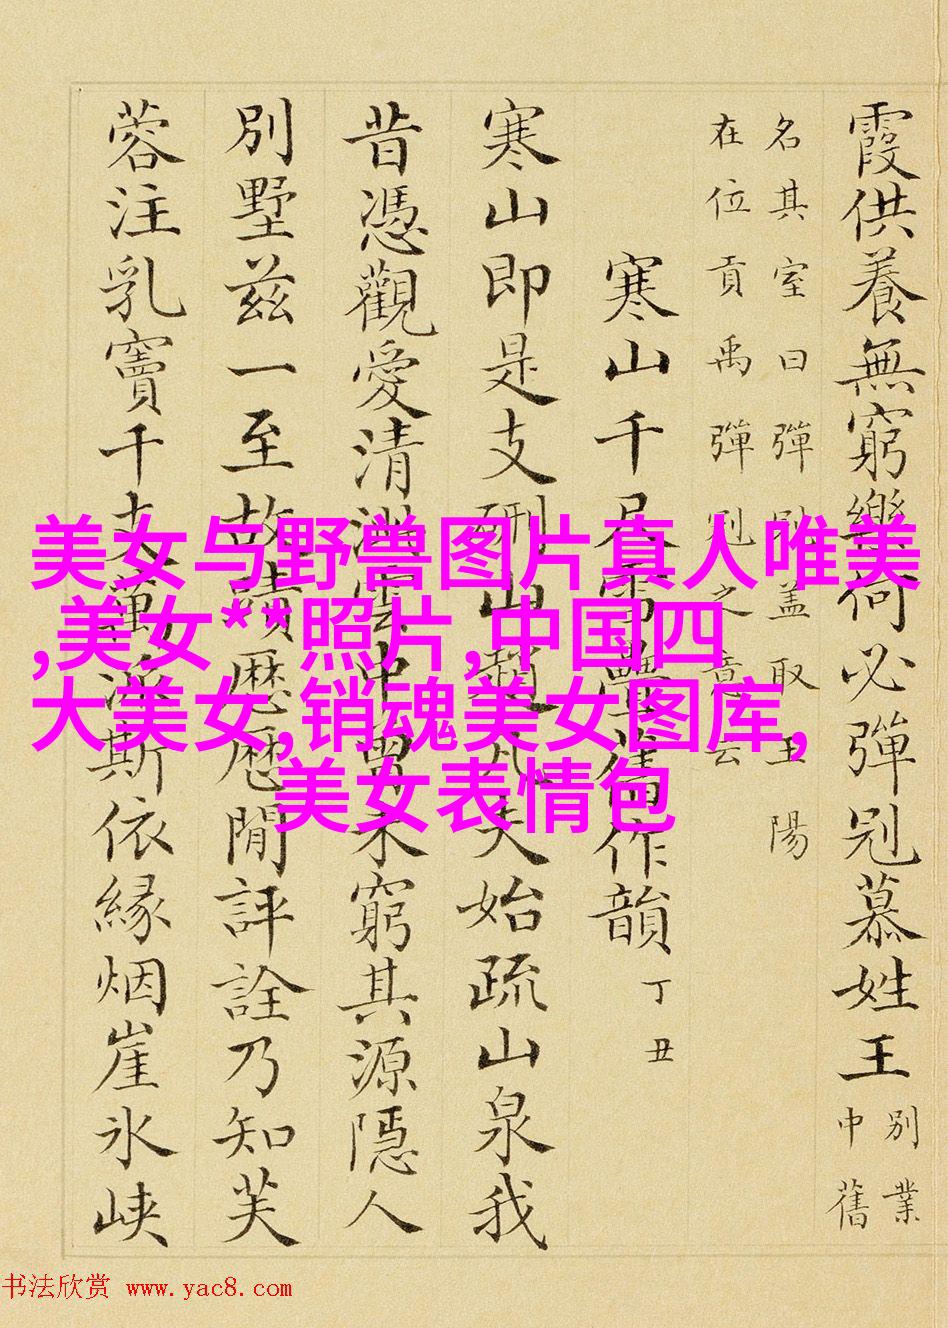 霞供養無窮樂何必彈冠慕姓王
別業
中舊
名其室曰彈冠蓋取王陽
在位貢禹彈冠之意云
寒山千尺雪疊舊作韻 丁丑
寒山即是支硎山趙凡夫始疏山泉我
昔憑觀愛清雲中未窮其源隱人
別墅茲一至故蹟歷歷閒評詮乃知芙
蓉注乳竇千支萬派斯依緣烟崖氷峽
美女与野兽图片真人唯美
,美女**照片,中国四
大美女,销魂美女图库,
美女表情包
书法欣赏 www.yac8.com